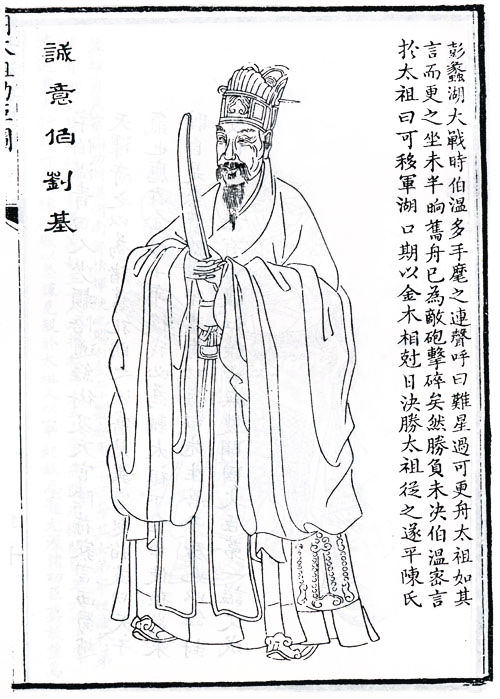 彭蠡湖大戰時伯溫多手麾之連聲呼曰難星過可更舟太祖如其
言而更之坐未半晌舊舟已為敵砲擊碎矣然勝負未决伯溫密言
扵太祖曰可移軍湖口期以金木相尅日決勝太祖從之遂平陳氏
誠意伯劉基